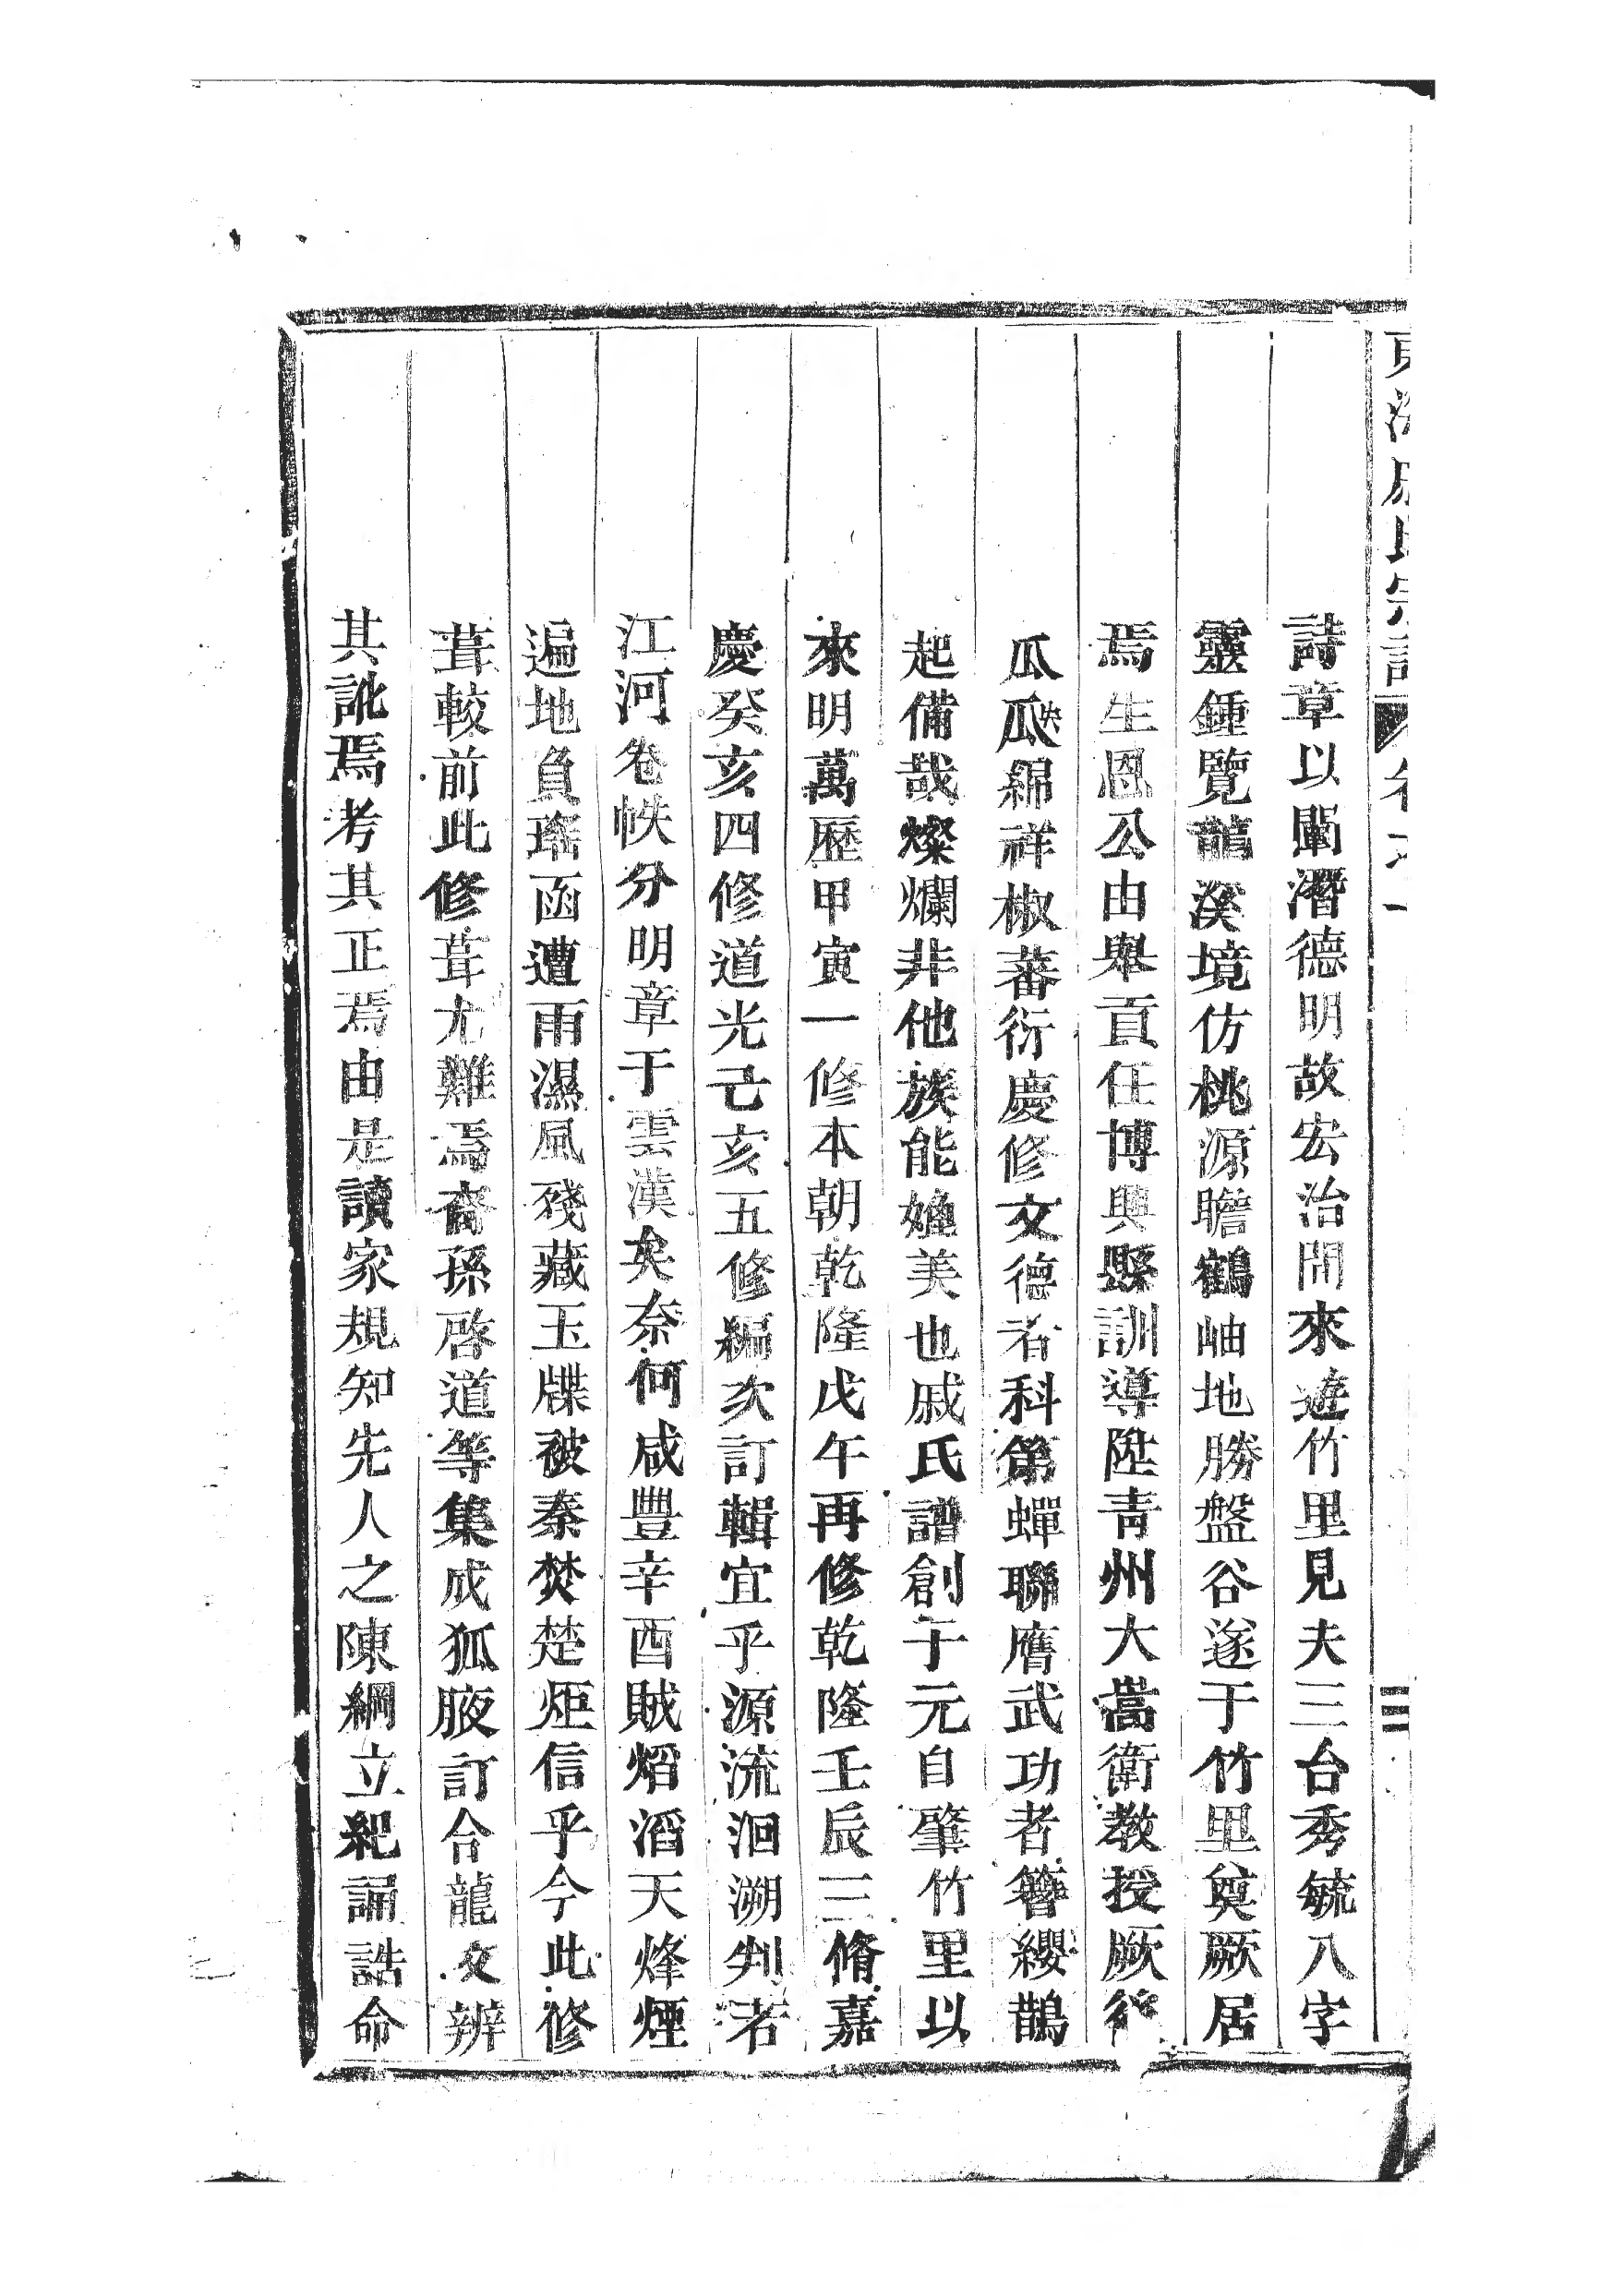 氏宗譜
卷之一
三
詩章以闡潛德明故宏治間來遊竹里見夫三台秀毓八字
靈鍾覽龍溪境仿桃源瞻鶴岫地勝盤谷遂于竹里奠厥居
焉生恩公由舉貢任博興縣訓導陞青州大嵩衛教授厥後
瓜瓞綿祥椒蕃衍慶修文德者科第蟬聯膺武功者簪纓鵲
起備哉燦爛非他族能媲美也戚氏譜創于元自肇竹里以
來明萬歷甲寅一修本朝乾隆戊午再修乾隆壬辰三脩嘉
慶癸亥四修道光己亥五修編次訂輯宜乎源流洄溯判若
江河卷帙分明章于雲漢矣奈何咸豐辛酉賊熖滔天烽煙
遍地負瑤函遭雨濕風殘藏玉牒被秦焚楚炬信乎今此修
葺較前此修葺尤難焉裔孫啓道等集成狐腋訂合龍文辨
其訛焉考其正焉由是讀家規知先人之陳綱立紀誦誥命